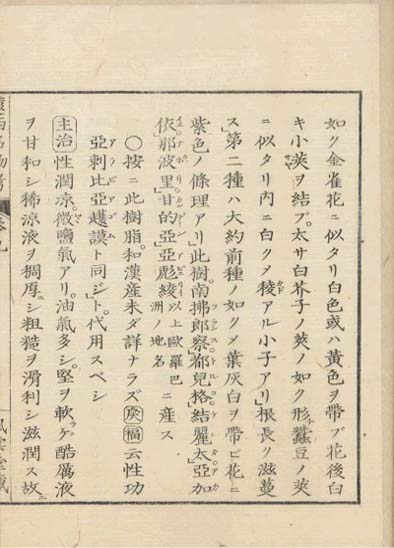 如ク金雀花ニ似タリ白色或ハ黄色ヲ帶ブ花後白
キ小莢ヲ結ブ太サ白芥子ノ莢ノ如ク形蠶豆ノ莢
ニ似タリ内ニ白クメ稜アル小子アリ」根長ク滋蔓
ス」第二種ハ大約前種ノ如クメ葉灰白ヲ帶ビ花ニ
紫色ノ條理アリ」此樹南拂郎察都兒格結麗太亞加
依那波里甘的亞亞彪綾以上歐羅巴洲ノ地名ニ産ス
〇按ニ此樹脂和漢産未ダ詳ナラズ 福云性功
亞剌比亞護謨ト同ジト。代用スベシ
主治 性潤凉。微鹽氣アリ。油氣多シ。堅ヲ軟ラゲ酷厲液
ヲ甘和シ稀凉液ヲ稠厚ニシ粗糙ヲ滑利シ滋潤ス故ニ